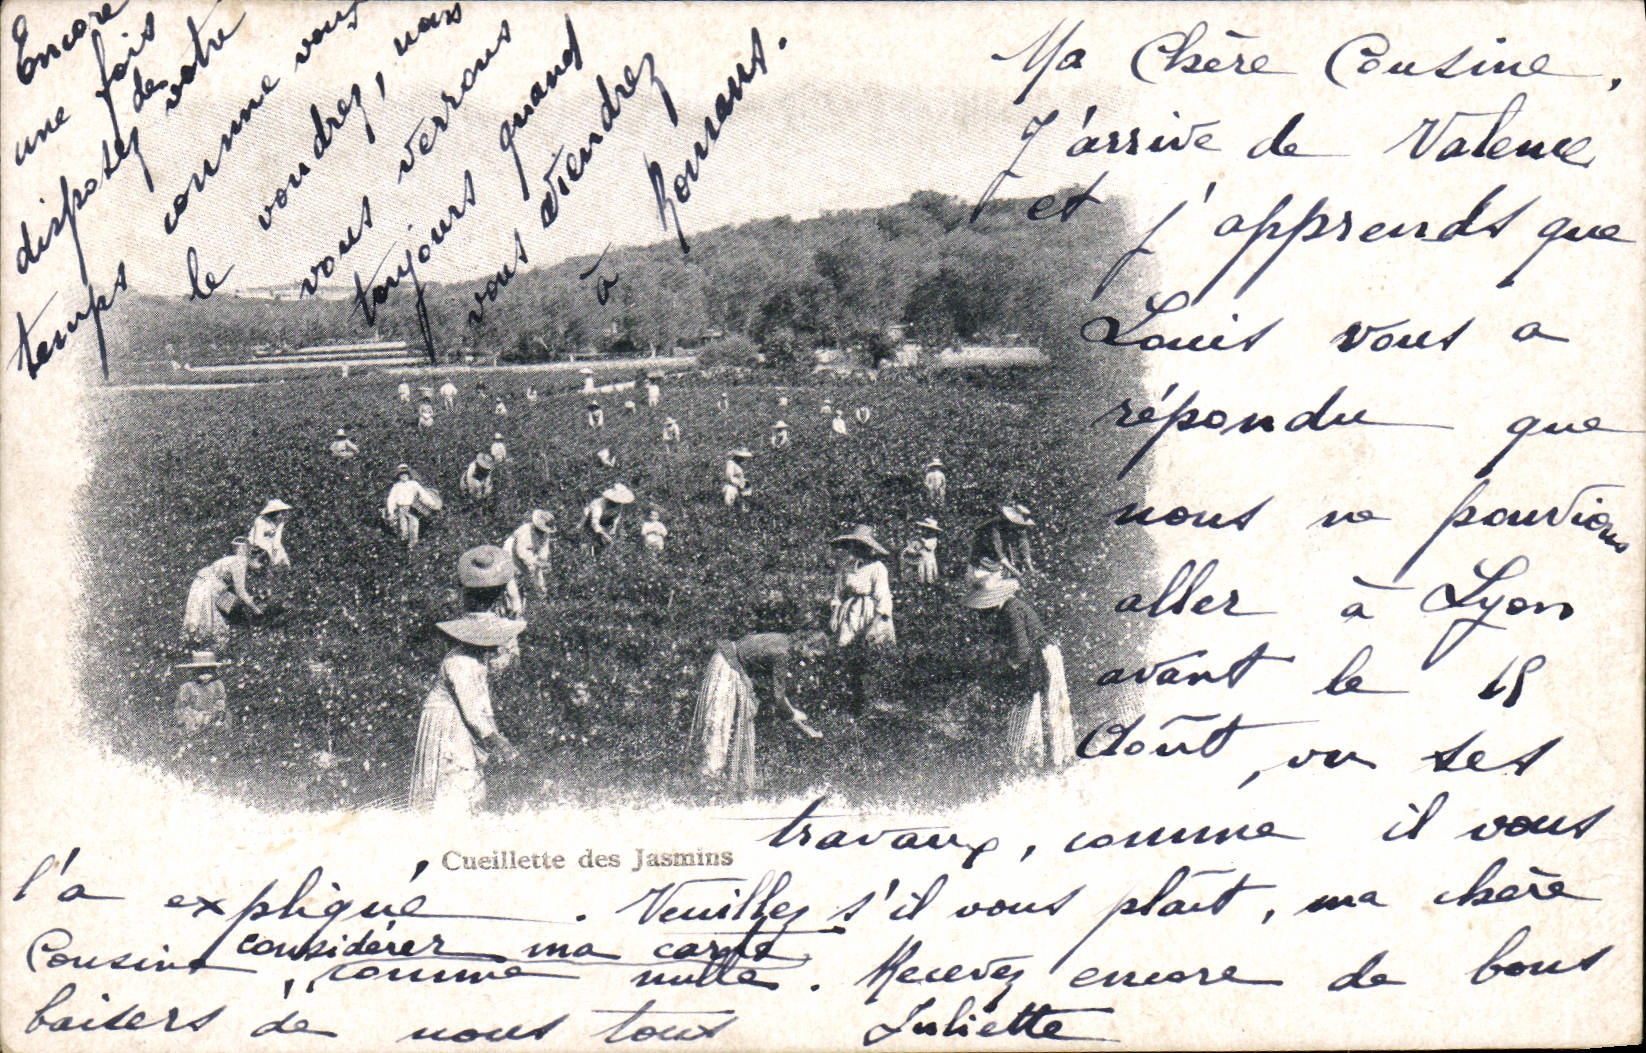 Ma Chère Cousine,
J'arrive de Valence
et j'apprends que
Louis vous a
répondu que
nous ne pouvions
aller à Lyon
avant le 15
Août, vu ses
travaux, comme il vous
l'a expliqué. Veuillez s'il vous plaît, ma chère
Cousine, considérer ma carte
comme nulle. Recevez encore de bons
baisers de nous tous Juliette
Encore
une fois
disposez de votre
temps comme vous
le voudrez, nous
vous verrons
toujours quand
vous viendrez
à
Cueillette des Jasmins